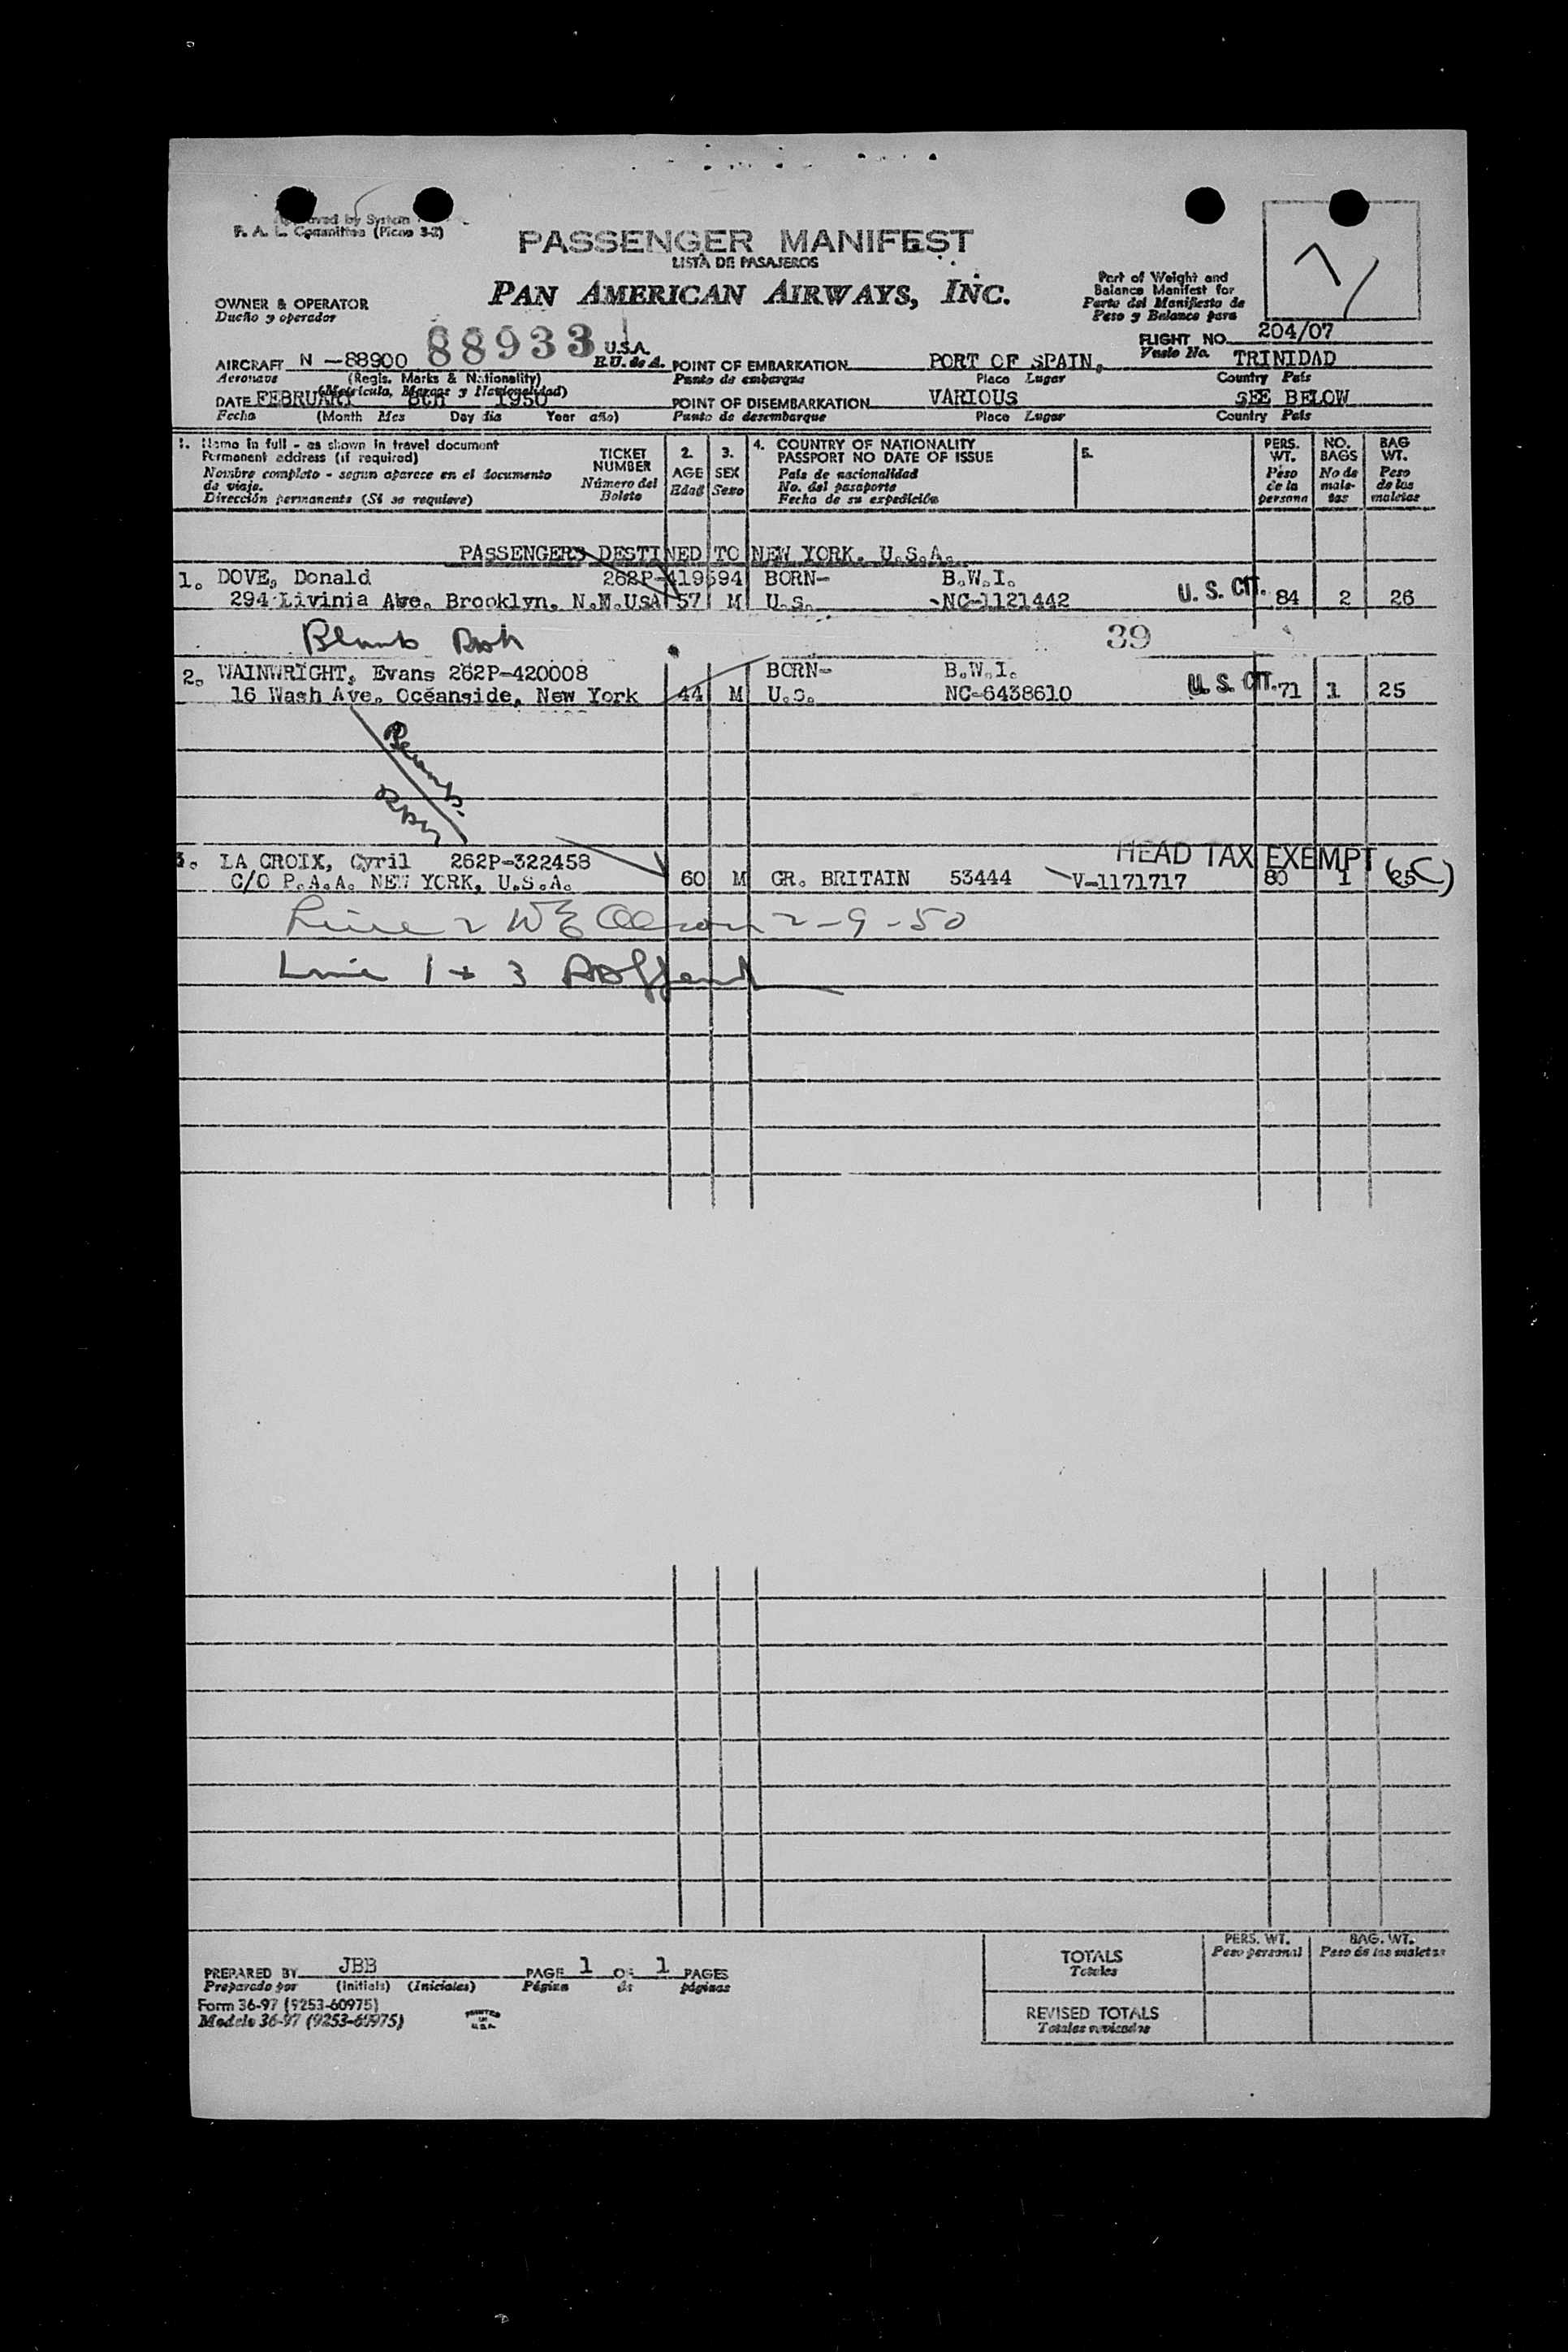 Approved by System
F. A. L. Committee (Picao 3-2)
PASSENGER MANIFEST
LISTA DE PASAJEROS
PAN AMERICAN AIRWAYS, INC.
Part of Weight and
Balance Manifest for
Parte del Manifiesto de
Peso y Balance para
OWNER & OPERATOR
Dueño y operador
FLIGHT NO. 204/07
Vuelo No.
88933
AIRCRAFT N -88900 U.S.A. POINT OF EMBARKATION PORT OF SPAIN, TRINIDAD
Aeronave (Regis. Marks & Nationality) E.U. de A. Punto de embarque Place Lugar Country País
(Matricula, Marcas y Nacionalidad)
DATE FEBRUARY 8th 1950 POINT OF DISEMBARKATION VARIOUS SEE BELOW
Fecha (Month Mes Day día Year año) Punto de desembarque Place Lugar Country País
1. Name in full - as shown in travel document
Permanent address (if required)
Nombre completo - segun aparece en el documento
de viaje.
Dirección permanente (Si se requiere)
TICKET
NUMBER
Número del
Boleto
2.
AGE
Edad
3.
SEX
Sexo
4. COUNTRY OF NATIONALITY
PASSPORT NO DATE OF ISSUE
País de nacionalidad
No. del pasaporte
Fecha de su expedición
5.
PERS.
WT.
Peso
de la
persona
NO.
BAGS
No de
male-
tas
BAG
WT.
Peso
de las
maletas
PASSENGERS DESTINED TO NEW YORK. U.S.A.
1. DOVE, Donald 262P-419594 BORN- B.W.I.
294 Livinia Ave. Brooklyn, N.Y.USA 57 M U.S. -NC-1121442 U. S. CIT. 84 2 26
39
2. WAINWRIGHT, Evans 262P-420008 BORN- B.W.I.
16 Wash Ave. Oceanside, New York 44 M U.S. NC-6438610 U. S. CIT. 71 1 25
HEAD TAX EXEMPT (C)
3. LA CROIX, Cyril 262P-322458
C/O P.A.A. NEW YORK, U.S.A. 60 M GR. BRITAIN 53444 V-1171717 80 1 25
Line 2 2-9-50
Line 1 + 3
PREPARED BY JBB PAGE 1 OF 1 PAGES
Preparado por (Initials) (Iniciales) Página de páginas
Form 36-97 (9253-60975)
Modelo 36-97 (9253-60975)
PRINTED
IN
U.S.A.
PERS. WT.
Peso personal
BAG. WT.
Peso de las maletas
TOTALS
Totales
REVISED TOTALS
Totales revisados